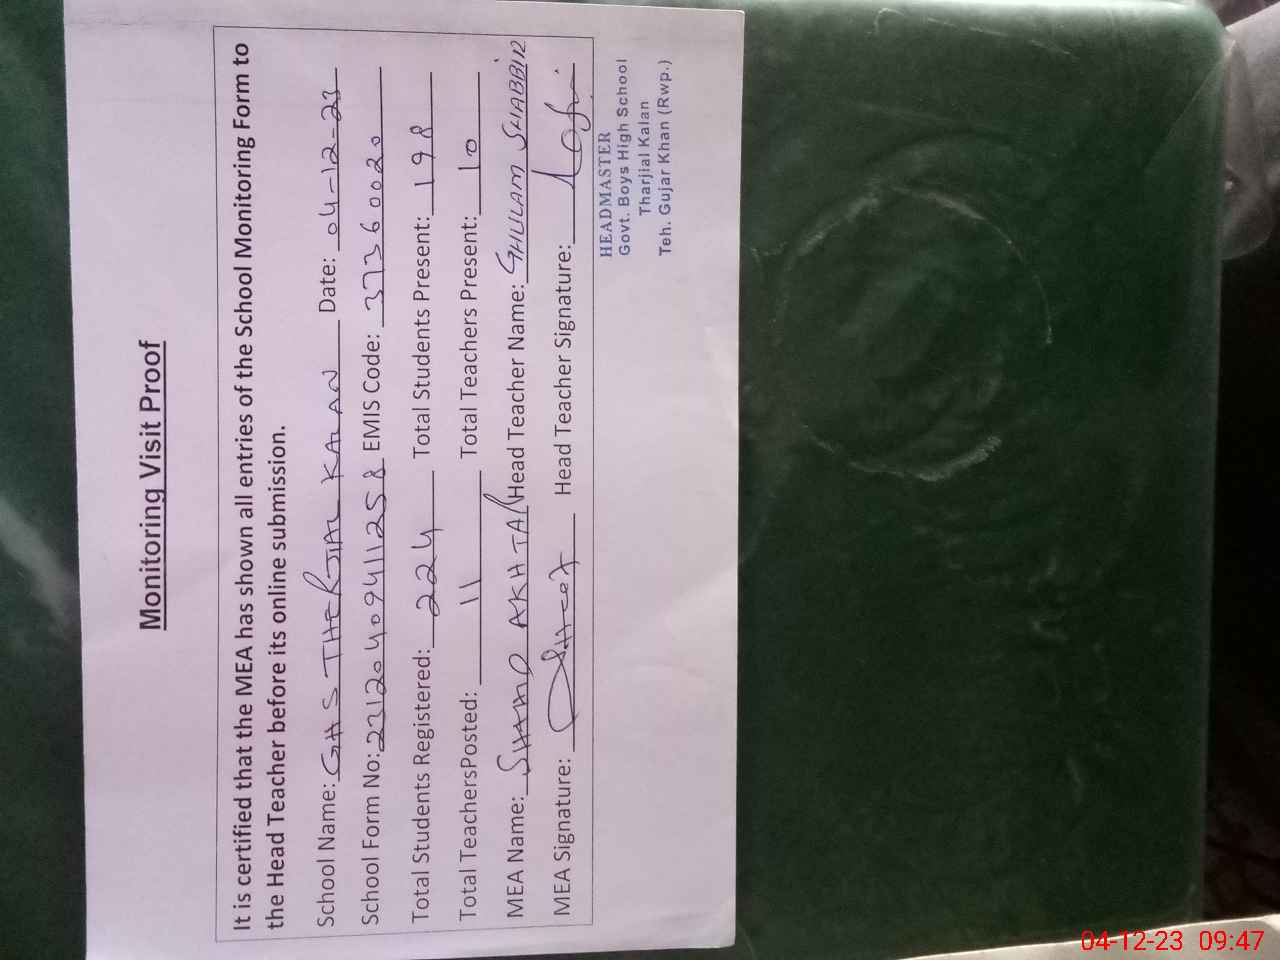 Monitoring Visit Proof
It is certified that the MEA has shown all entries of the School Monitoring Form to
the Head Teacher before its online submission.
School Name: GHS THERJIAL KALAN Date: 04-12-23
School Form No: 23120409411258 EMIS Code: 37360020
Total Students Registered: 224 Total Students Present: 198
Total TeachersPosted: 11 Total Teachers Present: 10
MEA Name: AKHTAR Head Teacher Name: GHULAM SHABBIR
MEA Signature: Head Teacher Signature:
HEADMASTER
Govt. Boys High School
Tharjial Kalan
Teh. Gujar Khan (Rwp.)
04-12-23 09:47